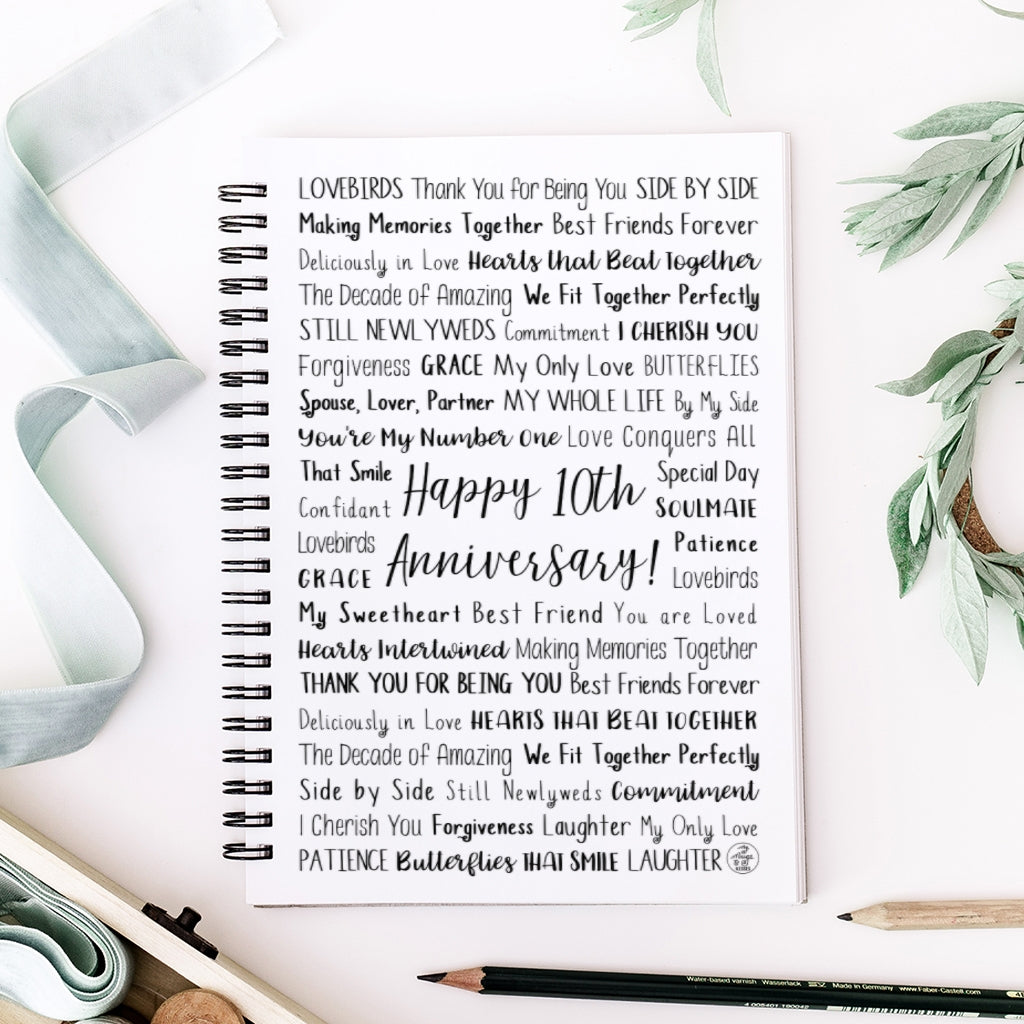 LOVEBIRDS Thank You for Being You SIDE BY SIDE
Making Memories Together Best Friends Forever
Deliciously in Love Hearts that Beat Together
The Decade of Amazing We Fit Together Perfectly
STILL NEWLYWEDS Commitment I CHERISH YOU
Forgiveness GRACE My Only Love BUTTERFLIES
Spouse, Lover, Partner MY WHOLE LIFE By My Side
You're My Number One Love Conquers All
That Smile Happy 10th Special Day
Confidant SOULMATE
Lovebirds Anniversary! Patience
GRACE Lovebirds
My Sweetheart Best Friend You are Loved
Hearts Intertwined Making Memories Together
THANK YOU FOR BEING YOU Best Friends Forever
Deliciously in Love HEARTS THAT BEAT TOGETHER
The Decade of Amazing We Fit Together Perfectly
Side by Side Still Newlyweds Commitment
I Cherish You Forgiveness Laughter My Only Love
PATIENCE Butterflies THAT SMILE LAUGHTER
Water-based varnish Wasserlack Made in Germany www.Faber-Castell.com
4 005401 190042